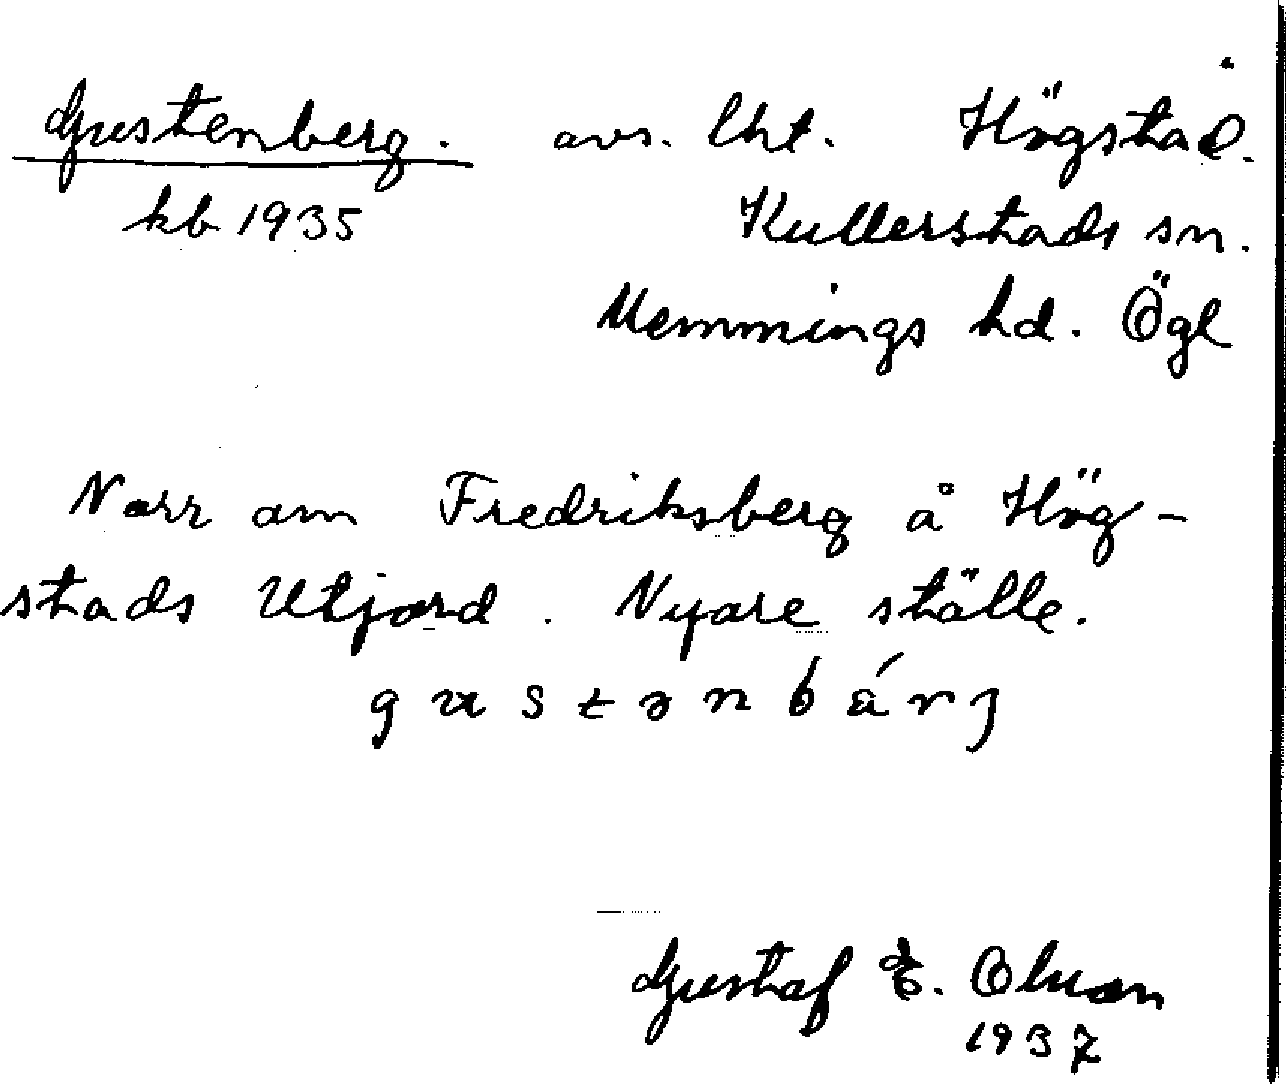 Gustenberg. avs. lht. Högstad.
kb 1935 Kullerstads sn.
Memmings hd. Ögl
Norr om Fredriksberg å Hög-
stads Utjord. Nyare ställe.
gustənbárj
Gustaf E. Olson
1937